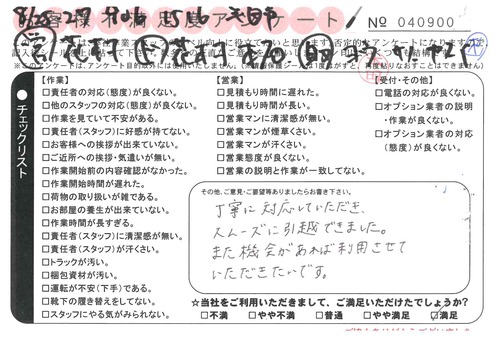 アンケート
№ 040900
チェックリスト
【作業】
□責任者の対応(態度)が良くない。
□他のスタッフの対応(態度)が良くない。
□作業を見ていて不安がある。
□責任者(スタッフ)に好感が持てない。
□お客様への挨拶が出来ていない。
□ご近所への挨拶・気遣いが無い。
□作業開始前の内容確認がなかった。
□作業開始時間が遅れた。
□荷物の取り扱いが雑である。
□お部屋の養生が出来ていない。
□作業時間が長すぎる。
□責任者(スタッフ)に清潔感が無い。
□責任者(スタッフ)が汗くさい。
□トラックが汚い。
□梱包資材が汚い。
□運転が不安(下手)である。
□靴下の履き替えをしてない。
□スタッフにやる気がみられない。
【営業】
□見積もり時間に遅れた。
□見積もり時間が長い。
□営業マンに清潔感が無い。
□営業マンが煙草くさい。
□営業マンが汗くさい。
□営業態度が良くない。
□営業の説明と作業が一致してない。
【受付・その他】
□電話の対応が良くない。
□オプション業者の説明
・作業が良くない。
□オプション業者の対応
(態度)が良くない。
その他、ご意見・ご要望等ありましたらお書き下さい。
丁寧に対応していただき、
スムーズに引越できました。
また機会があれば利用させて
いただきたいです。
☆当社をご利用いただきまして、ご満足いただけたでしょうか?
□不満 □やや不満 □普通 □やや満足 ☑満足